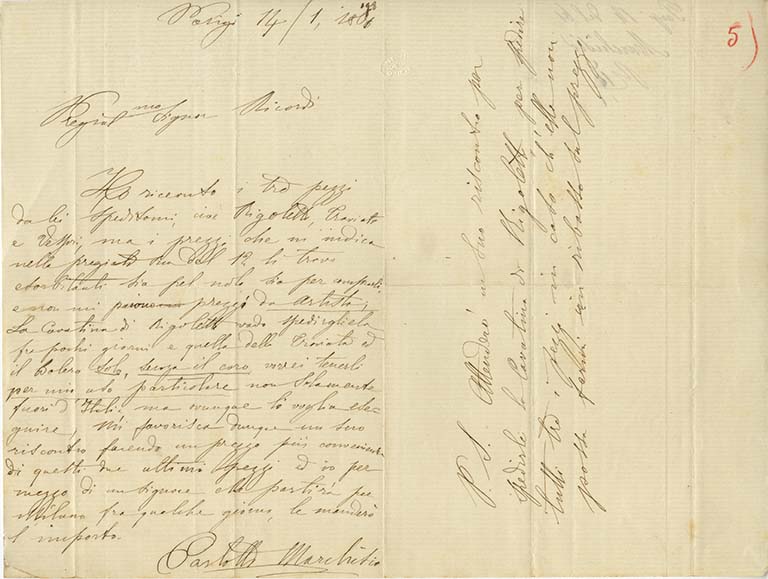 Parigi 14/1, 1886
Pregiat.mo Signor Ricordi
Ho ricevuto i tre pezzi
da lei speditomi, cioè Rigoletto, Traviata
e Vespri, ma i prezzi che mi indica
nella pregiata sua dell' 12. li trovo
esorbitanti sia pel nolo sia per comperarli
e non mi prezzi da Artista;
La Cavatina di Rigoletto vado spedirgliela
fra pochi giorni e quella della Traviata ed
il Bolero solo, senza il coro, vorrei tenerli
per mio uso particolare non solamente
fuori d'Italia ma ovunque li voglia ese-
guire, Mi favorisca dunque un suo
riscontro facendo un prezzo più conveniente
di questi due ultimi pezzi ed io per
mezzo di un signore che partirà per
Milano fra qualche giorno, le manderò
l'importo.
Carlotta
P.S. Attenderò un suo riscontro per
spedirle la Cavatina di Rigoletto per spedire
tutti tre i pezzi in caso ch'Ella non
possa farmi un ribasso sul prezzo
5)